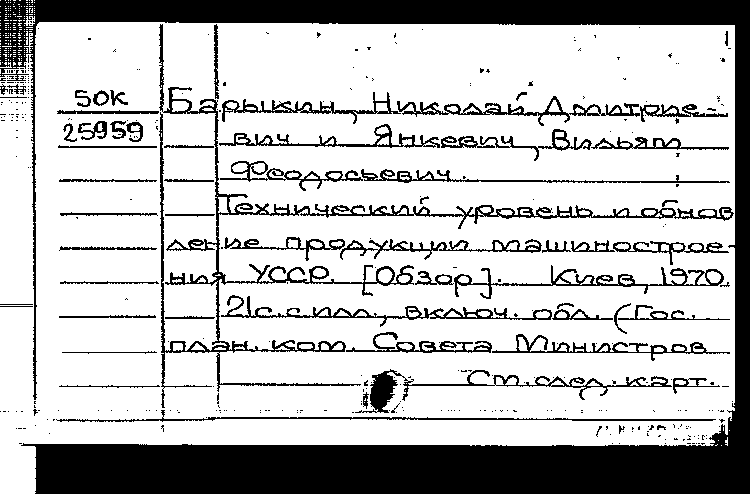 50К
25959
Барыкин, Николай Дмитрие-
вич и Янкевич, Вильям
Феодосьевич.
Технический уровень и обнов
ление продукции машинострое-
ния УССР. [Обзор]. Киев, 1970.
21с. с илл., включ. обл. (Гос.
план. ком. Совета Министров
См. след. карт.